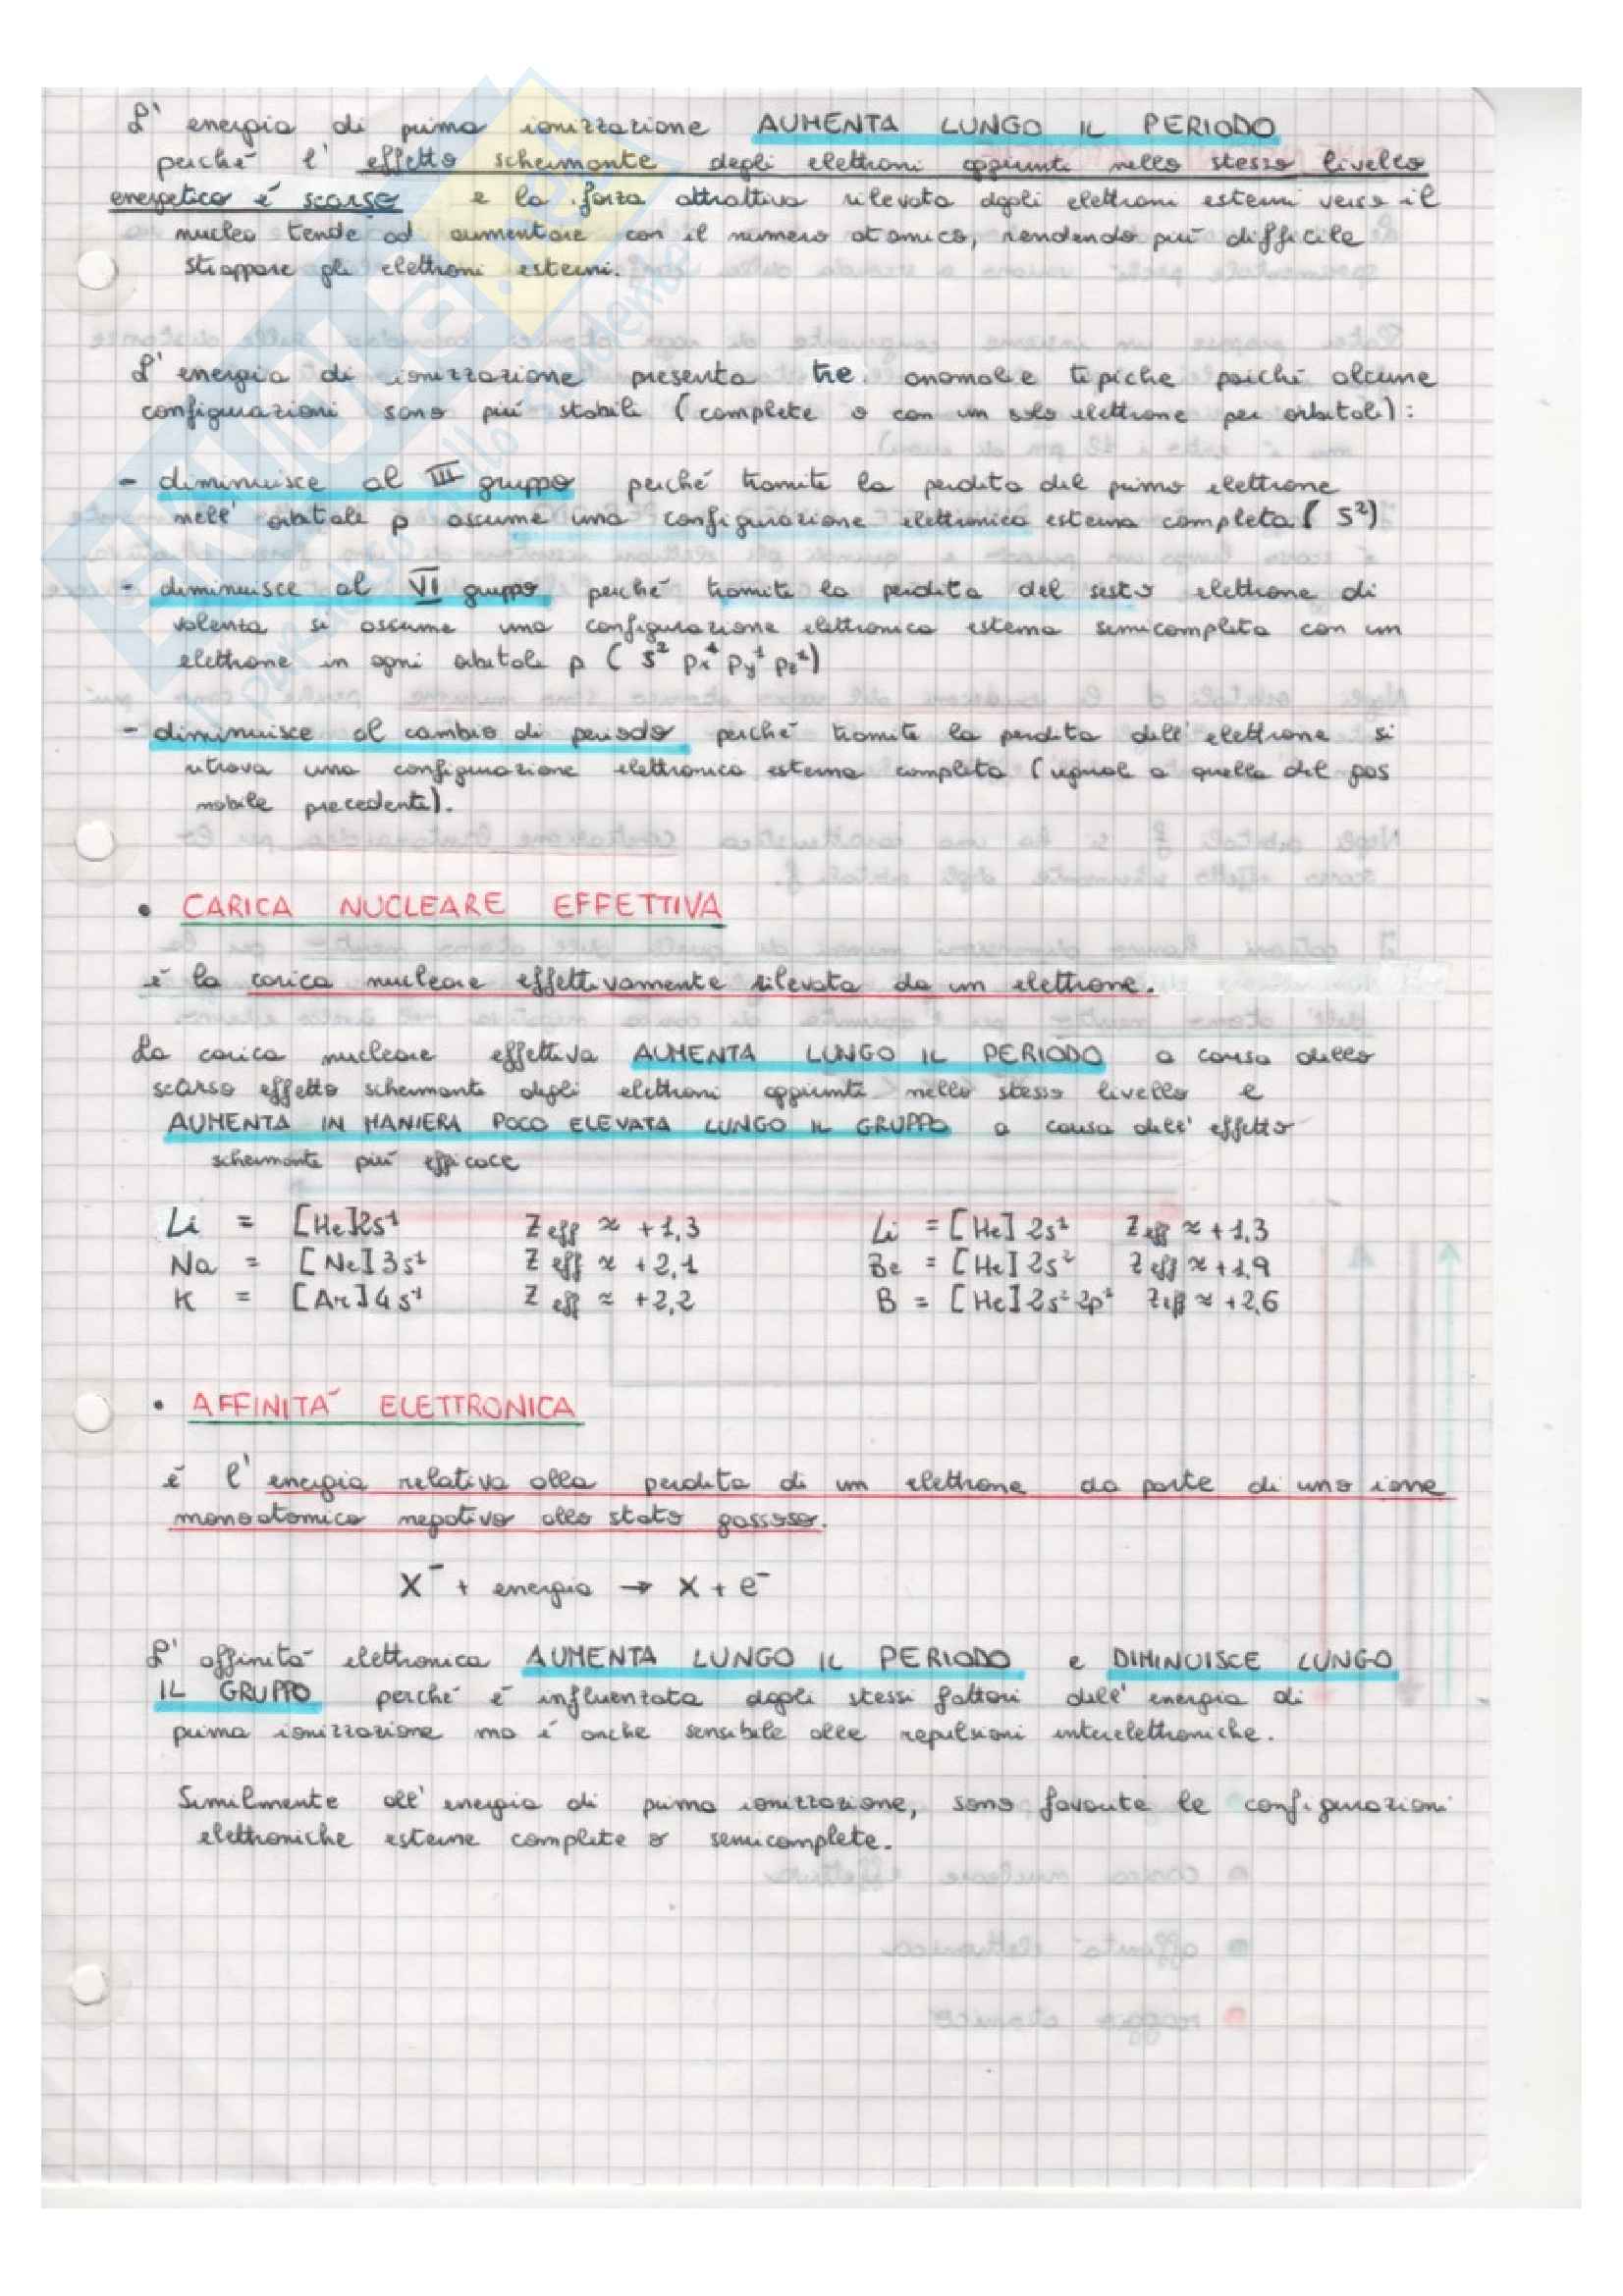 L' energia di prima ionizzazione AUMENTA LUNGO IL PERIODO
perché l' effetto schermante degli elettroni aggiunti nello stesso livello
energetico é scarso e la forza attrattiva rilevata dagli elettroni esterni verso il
nucleo tende ad aumentare con il numero atomico, rendendo più difficile
strappare gli elettroni esterni.
L' energia di ionizzazione presenta tre anomalie tipiche poiché alcune
configurazioni sono più stabili (complete o con un solo elettrone per orbitale):
- diminuisce al III gruppo perché tramite la perdita del primo elettrone
nell' orbitale p assume una configurazione elettronica esterna completa ( s²)
- diminuisce al VI gruppo perché tramite la perdita del sesto elettrone di
valenza si assume una configurazione elettronica esterna semicompleta con un
elettrone in ogni orbitale p ( s² px¹ py¹ pz¹)
- diminuisce al cambio di periodo perché tramite la perdita dell' elettrone si
ritrova una configurazione elettronica esterna completa (uguale a quella del gas
nobile precedente).
• CARICA NUCLEARE EFFETTIVA
é la carica nucleare effettivamente rilevata da un elettrone.
La carica nucleare effettiva AUMENTA LUNGO IL PERIODO a causa dello
scarso effetto schermante degli elettroni aggiunti nello stesso livello e
AUMENTA IN MANIERA POCO ELEVATA LUNGO IL GRUPPO a causa dell' effetto
schermante più efficace
Li = [He]2s¹ Zeff ≈ +1,3 Li = [He] 2s¹ Zeff ≈ +1,3
Na = [Ne]3s¹ Zeff ≈ +2,1 Be = [He] 2s² Zeff ≈ +1,9
K = [Ar]4s¹ Zeff ≈ +2,2 B = [He]2s² 2p¹ Zeff ≈ +2,6
• AFFINITÁ ELETTRONICA
é l' energia relativa alla perdita di un elettrone da parte di uno ione
monoatomico negativo allo stato gassoso.
X⁻ + energia → X + e⁻
L' affinità elettronica AUMENTA LUNGO IL PERIODO e DIMINUISCE LUNGO
IL GRUPPO perché é influenzata dagli stessi fattori dell' energia di
prima ionizzazione ma é anche sensibile alle repulsioni interelettroniche.
Similmente all' energia di prima ionizzazione, sono favorite le configurazioni
elettroniche esterne complete o semicomplete.